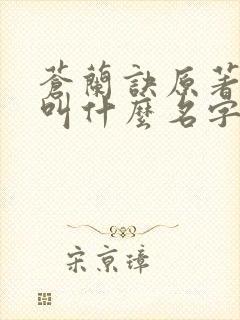 蒼蘭訣原著
叫什麼名字
宋京璋